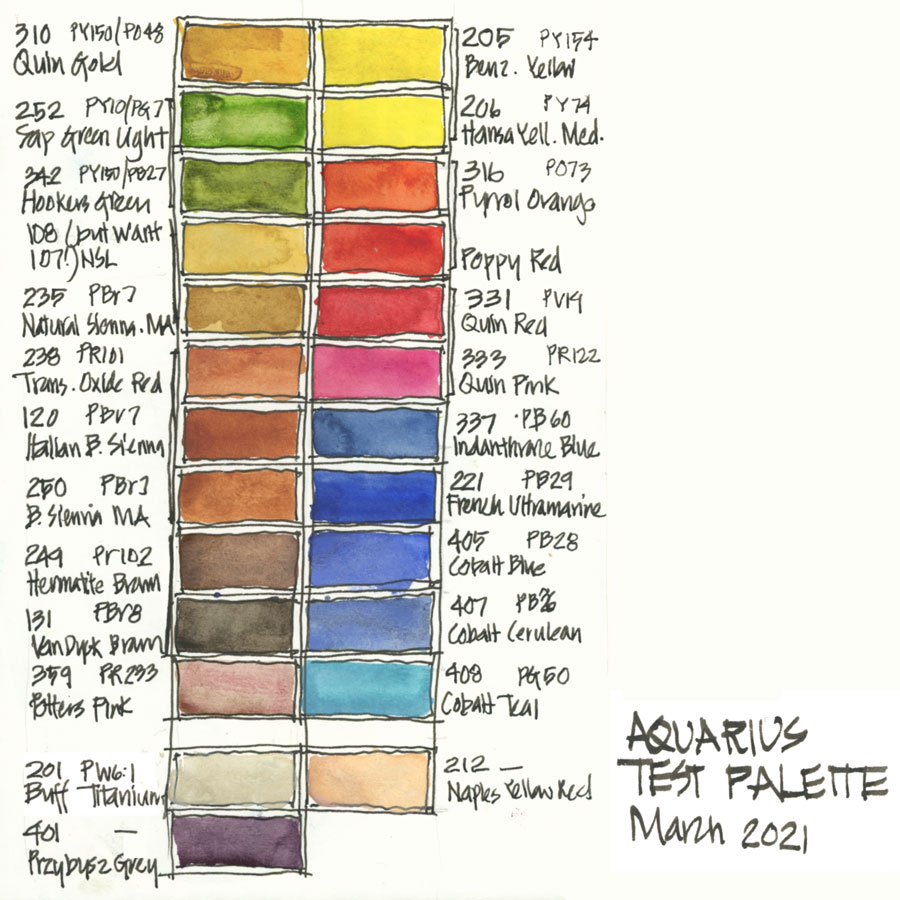 310 PY150/PO48
Quin Gold
252 PY10/PG7
Sap Green Light
342 PY150/PB27
Hookers Green
108 (but want
107!) NSL
235 PBr7
Natural Sienna. MA
238 PR101
Trans. Oxide Red
120 PBr7
Italian B. Sienna
250 PBr7
B. Sienna MA
249 Pr102
Hermatite Brown
131 PBr8
Van Dyck Brown
359 PR233
Potters Pink
201 PW6:1
Buff Titanium
401 —
Przybysz Grey
205 PY154
Benz. Yellow
206 PY74
Hansa Yell. Med.
316 PO73
Pyrrol Orange
Poppy Red
331 PV19
Quin Red
333 PR122
Quin Pink
337 PB60
Indanthrone Blue
221 PB29
French Ultramarine
405 PB28
Cobalt Blue
407
Cobalt Cerulean
408 PG50
Cobalt Teal
212 —
Naples Yellow Red
AQUARIUS
TEST PALETTE
March 2021